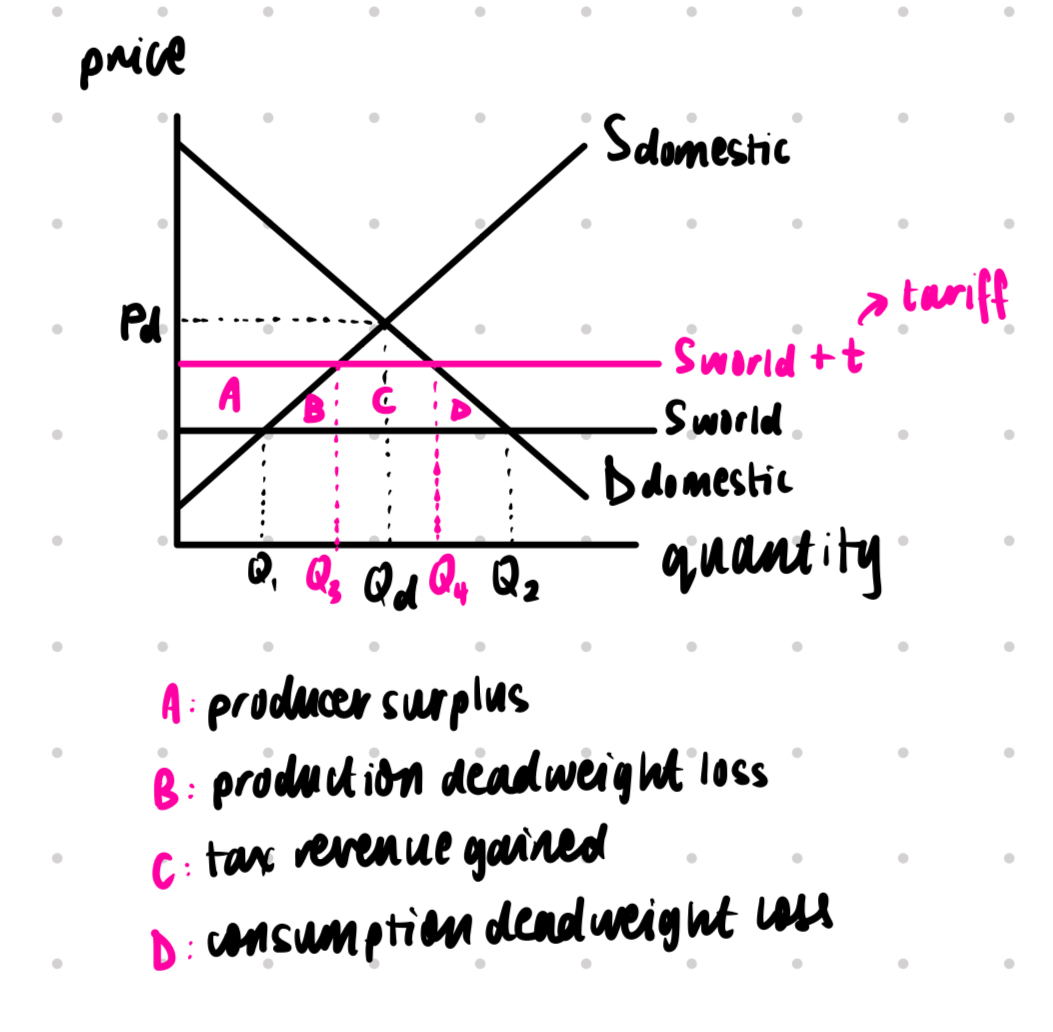 price
Sdomestic
tariff
Pd
Sworld + t
A
B
C
D
Sworld
Ddomestic
quantity
Q1
Q3
Qd
Q4
Q2
A: producer surplus
B: production deadweight loss
C: tax revenue gained
D: consumption deadweight loss